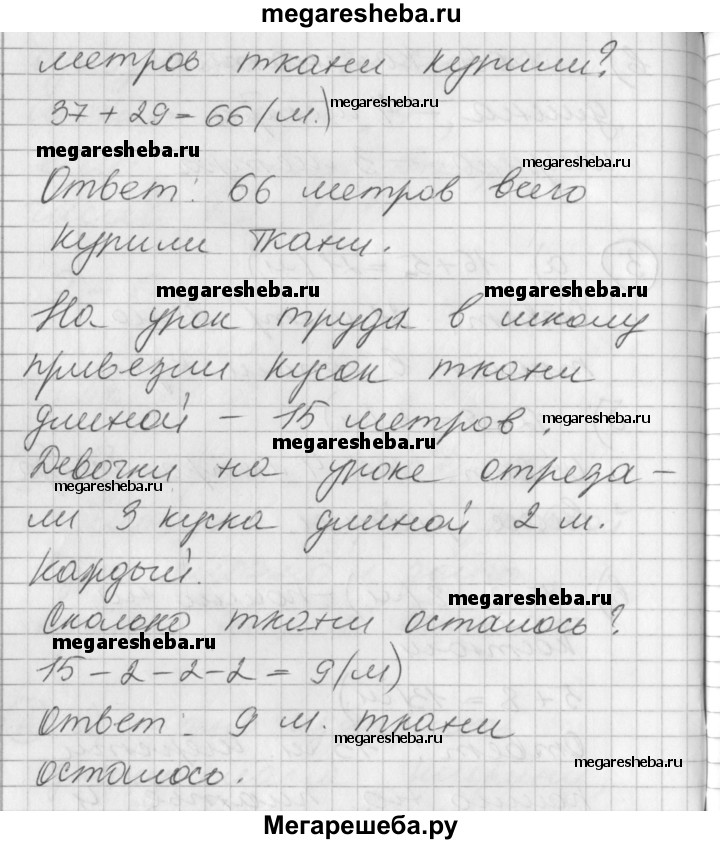 megaresheba.ru
метров ткани купили?
37 + 29 = 66 (м.)
megaresheba.ru
megaresheba.ru
megaresheba.ru
Ответ: 66 метров всего
купили ткани.
megaresheba.ru
megaresheba.ru
На урок труда в школу
привезли кусок ткани
длиной – 15 метров.
megaresheba.ru
megaresheba.ru
Девочки на уроке отреза-
megaresheba.ru
ли 3 куска длиной 2 м.
каждый.
megaresheba.ru
Сколько ткани осталось?
megaresheba.ru
15 – 2 – 2 – 2 = 9 (м)
Ответ: 9 м. ткани
megaresheba.ru
megaresheba.ru
осталось.
Мегарешеба.ру